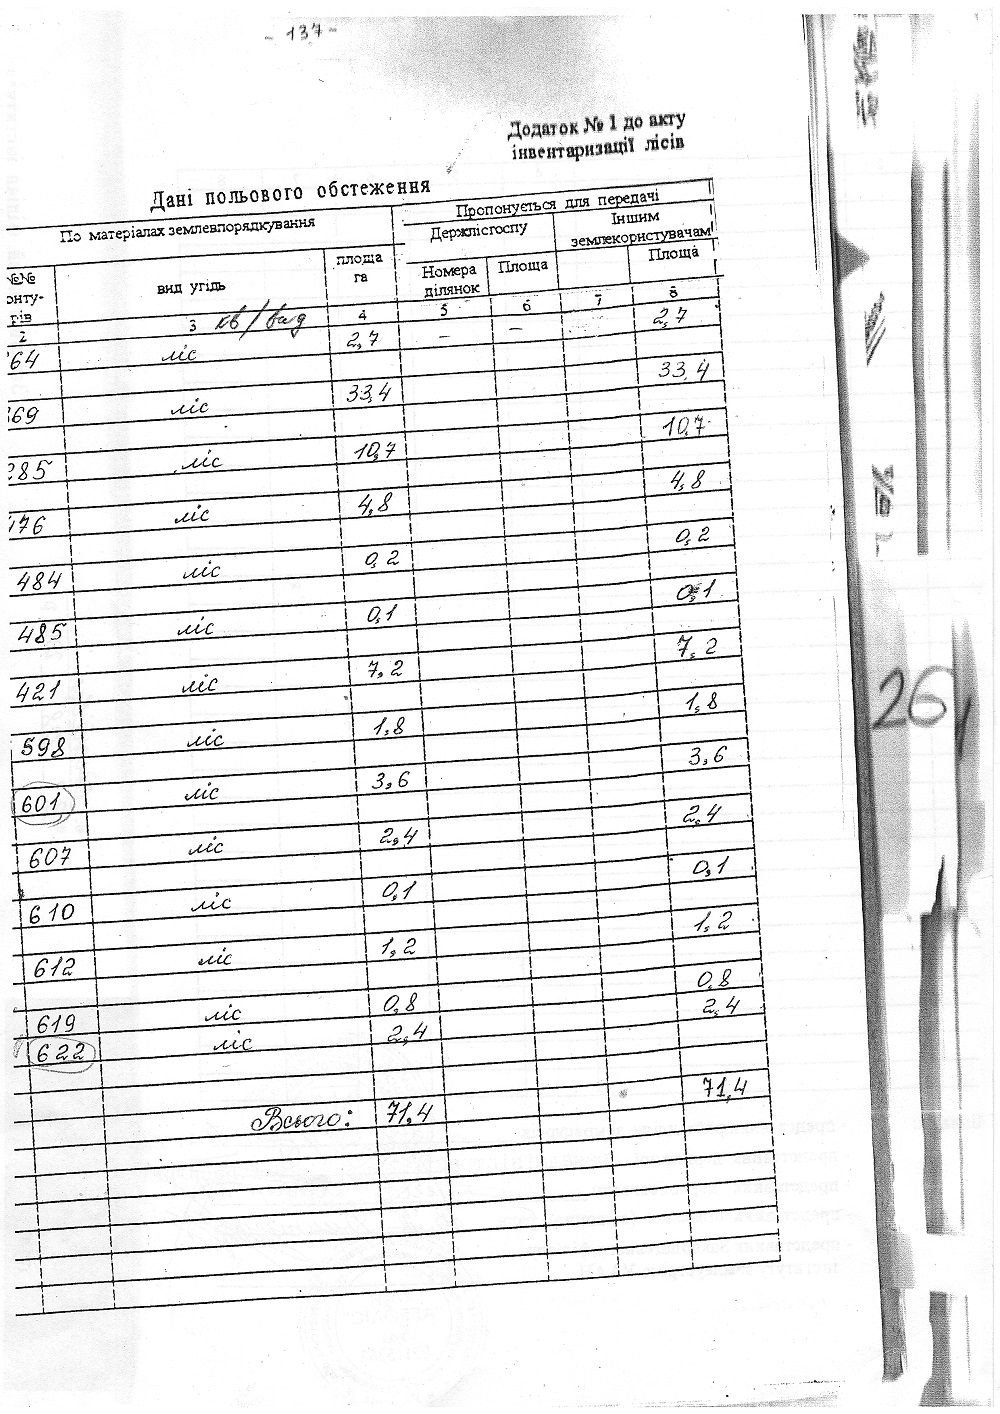 - 137 -
Додаток № 1 до акту
інвентаризації лісів
Дані польового обстеження
По матеріалах землевпорядкування
Пропонується для передачі
Держлісгоспу
Іншим
землекористувачам
№№
онту-
рів
вид угідь
площа
га
Номера
ділянок
Площа
Площа
2 3 кв/вид 4 5 6 7 8
64 ліс 2,7 — — 2,7
69 ліс 33,4 33,4
285 ліс 10,7 10,7
176 ліс 4,8 4,8
484 ліс 0,2 0,2
485 ліс 0,1 0,1
421 ліс 7,2 7,2
598 ліс 1,8 1,8
601 ліс 3,6 3,6
607 ліс 2,4 2,4
610 ліс 0,1 0,1
612 ліс 1,2 1,2
619 ліс 0,8 0,8
622 ліс 2,4 2,4
Всього: 71,4 71,4
26